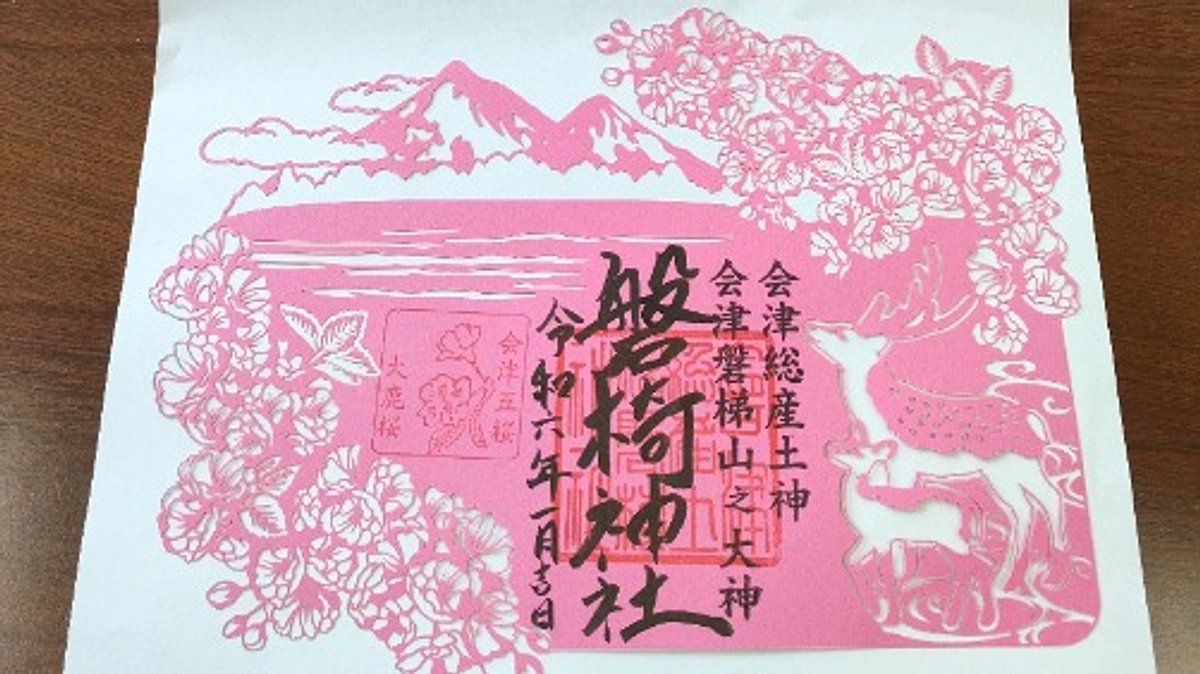 会津総産土神
会津磐梯山之大神
磐椅神社
令和六年一月吉日
会津五桜
大鹿桜